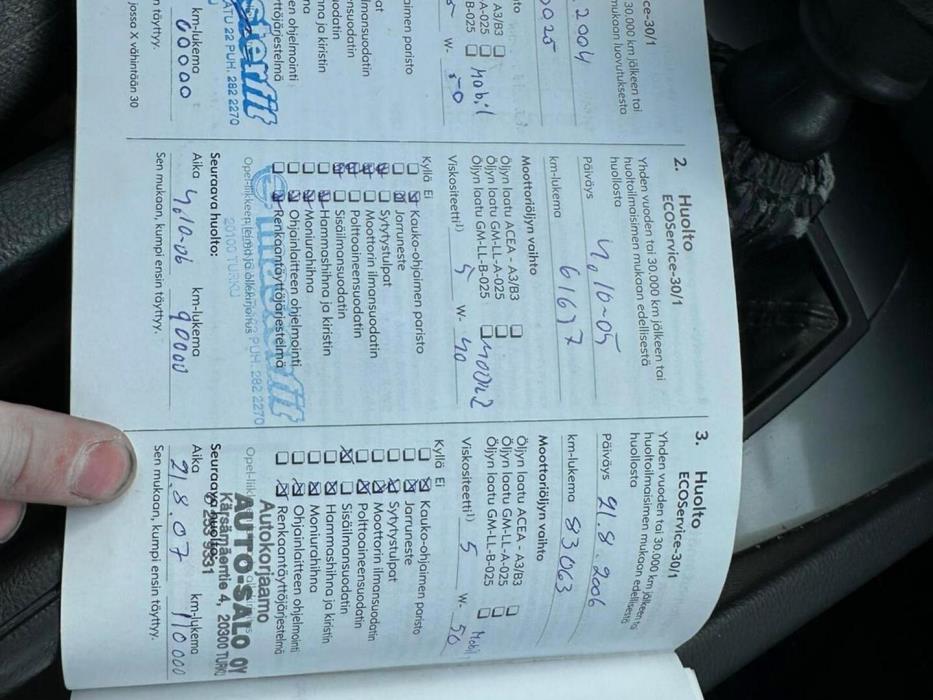 ice-30/1
30.000 km jälkeen tai
mukaan luovutuksesta
2004
A3/B3
A-025
B-025
Mobil
W-
ainen paristo
lmansuodatin
nsuodatin
odatin
hna ja kiristin
na
en ohjelmointi
yttöjärjestelmä
ATU 22 PUH. 282 2270
km-lukema
60000
jossa X vähintään 30
n täyttyy.
2. Huolto
ECOService-30/1
Yhden vuoden tai 30.000 km jälkeen tai
huoltoilmaisimen mukaan edellisestä
huollosta
Päiväys 4.10-05
km-lukema 61637
Moottoriöljyn vaihto
Öljyn laatu ACEA - A3/B3
Öljyn laatu GM-LL-A-025
Öljyn laatu GM-LL-B-025
Viskositeetti1) 5 W- 40
Kyllä Ei
Kauko-ohjaimen paristo
Jarruneste
Sytytystulpat
Moottorin ilmansuodatin
Polttoaineensuodatin
Sisäilmansuodatin
Hammashihna ja kiristin
Moniurahihna
Ohjainlaitteen ohjelmointi
Renkaantäyttöjärjestelmä
Opel-liikkeen leima ja allekirjoitus
22 PUH. 282 2270
20100 TURKU
Seuraava huolto:
Aika 4.10-06 km-lukema 90000
Sen mukaan, kumpi ensin täyttyy.
3. Huolto
ECOService-30/1
Yhden vuoden tai 30.000 km jälkeen ta
huoltoilmaisimen mukaan edellisestä
huollosta
Päiväys 21.8.2006
km-lukema 83063
Moottoriöljyn vaihto
Öljyn laatu ACEA - A3/B3
Öljyn laatu GM-LL-A-025
Öljyn laatu GM-LL-B-025
Mobil
Viskositeetti1) 5 W- 50
Kyllä Ei
Kauko-ohjaimen paristo
Jarruneste
Sytytystulpat
Moottorin ilmansuodatin
Polttoaineensuodatin
Sisäilmansuodatin
Hammashihna ja kiristin
Moniurahihna
Ohjainlaitteen ohjelmointi
Renkaantäyttöjärjestelmä
Autokorjaamo
Opel-liik
AUTO-SALO OY
Kärsämäentie 4, 20300 TURKU
Seuraava huolto:
Aika 21.8.07 km-lukema 110000
Sen mukaan, kumpi ensin täyttyy.